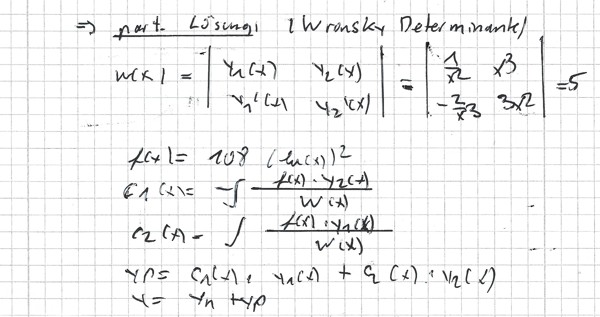 ⇒ part. Lösung: (Wronsky Determinante)
W(x) = | y1(x) y2(x) | = | 1/x2 x3 | = 5
| y1'(x) y2'(x) | | -2/x3 3x2 |
f(x) = 108 (ln(x))^2
c1(x) = -∫ f(x)·y2(x) / W(x)
c2(x) = ∫ f(x)·y1(x) / W(x)
yp = c1(x)· y1(x) + c2(x)· y2(x)
y = yh + yp